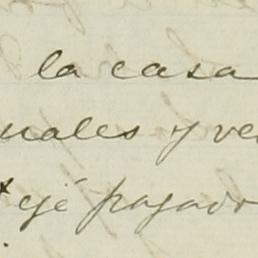 la casa
uales y ve
ejé pagado